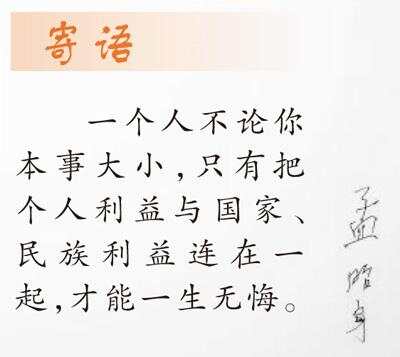 寄语
一个人不论你
本事大小,只有把
个人利益与国家、
民族利益连在一
起,才能一生无悔。